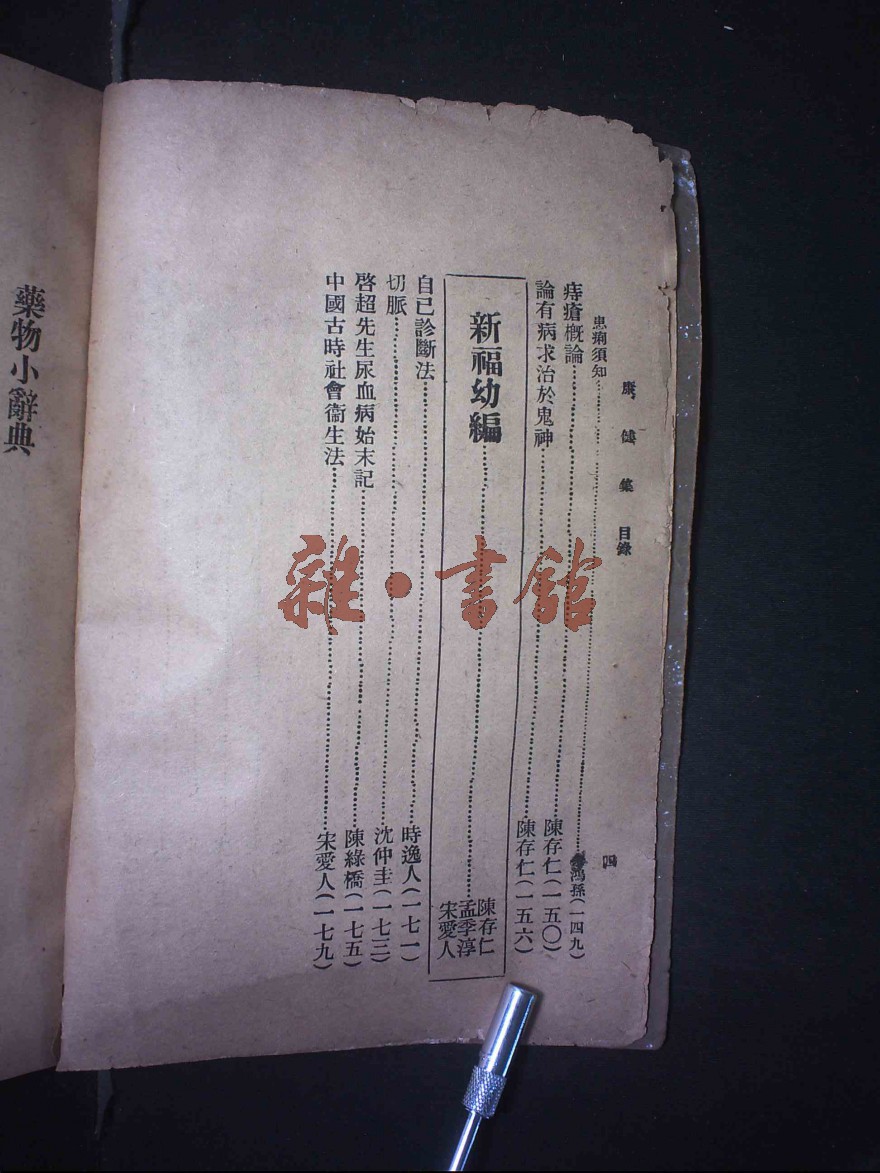 康健集 目錄
四
患痢須知……鴻孫(一四九)
痔瘡概論……陳存仁(一五〇)
論有病求治於鬼神……陳存仁(一五六)
新福幼編……陳存仁
孟季淳
宋愛人
自己診斷法……時逸人(一七一)
切脈……沈仲圭(一七三)
啓超先生尿血病始末記……陳綠橋(一七五)
中國古時社會衞生法……宋愛人(一七九)
藥物小辭典
雜·書館